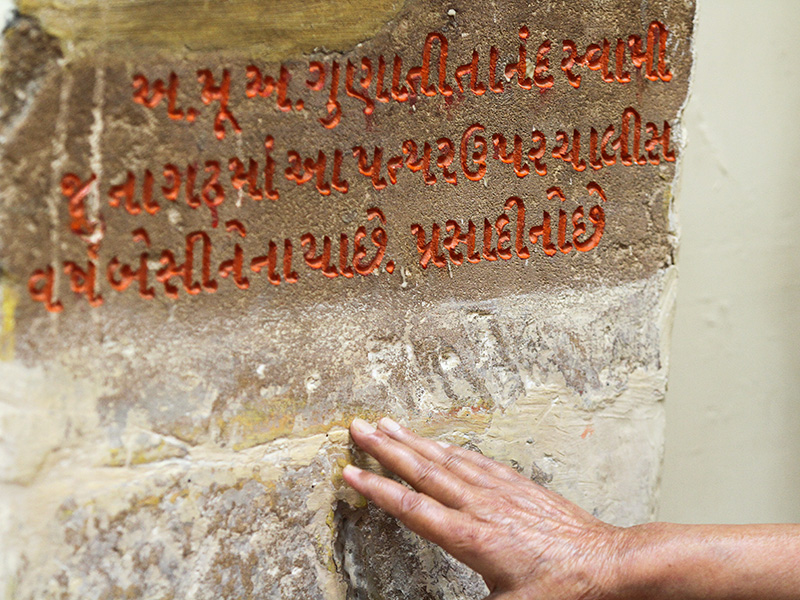 અ.મૂ અ. ગુણાતીતાનંદ સ્વામી
જુનાગઢમાં આ પત્થર ઉપર ચાલીસ
વર્ષ બેસીને નાયા છે. પ્રસાદીનો છે